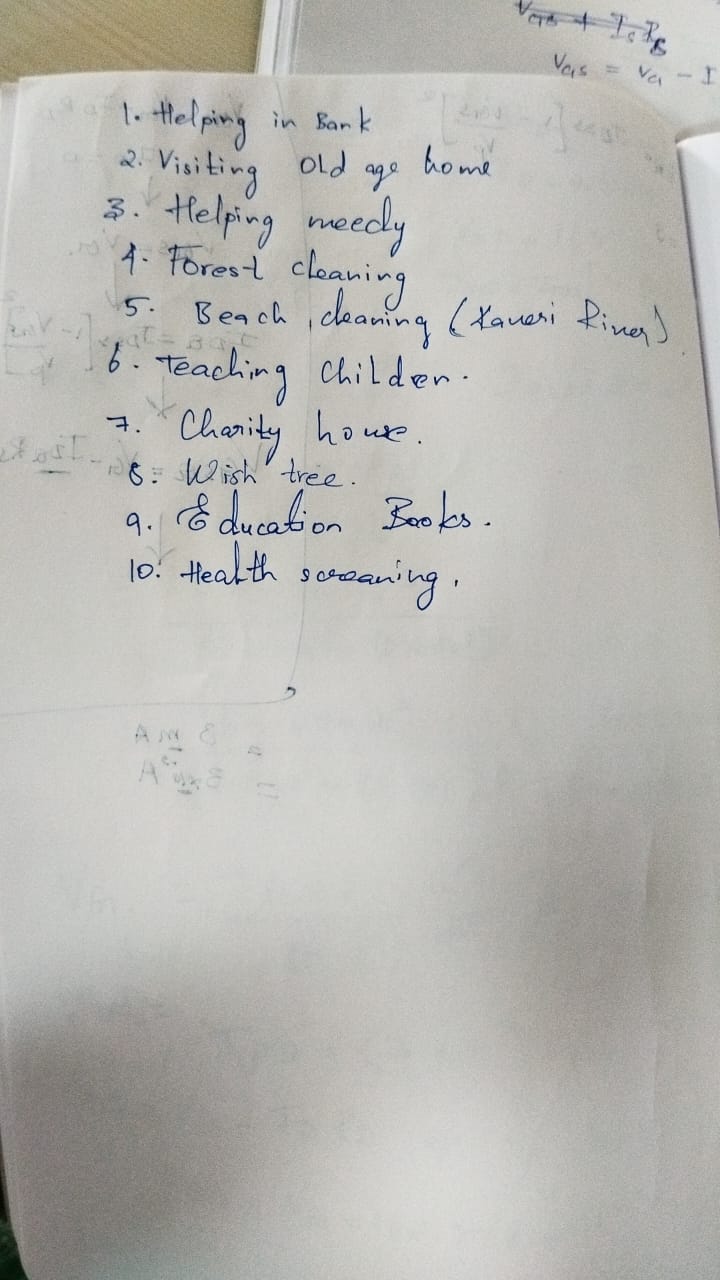 V_GS = V_G - I
1. Helping in Bank
2. Visiting old age home
3. Helping needy
4. Forest cleaning
5. Beach cleaning (Kaveri River)
6. Teaching children.
7. Charity house.
8. Wish tree.
9. Education Books.
10. Health screaning.